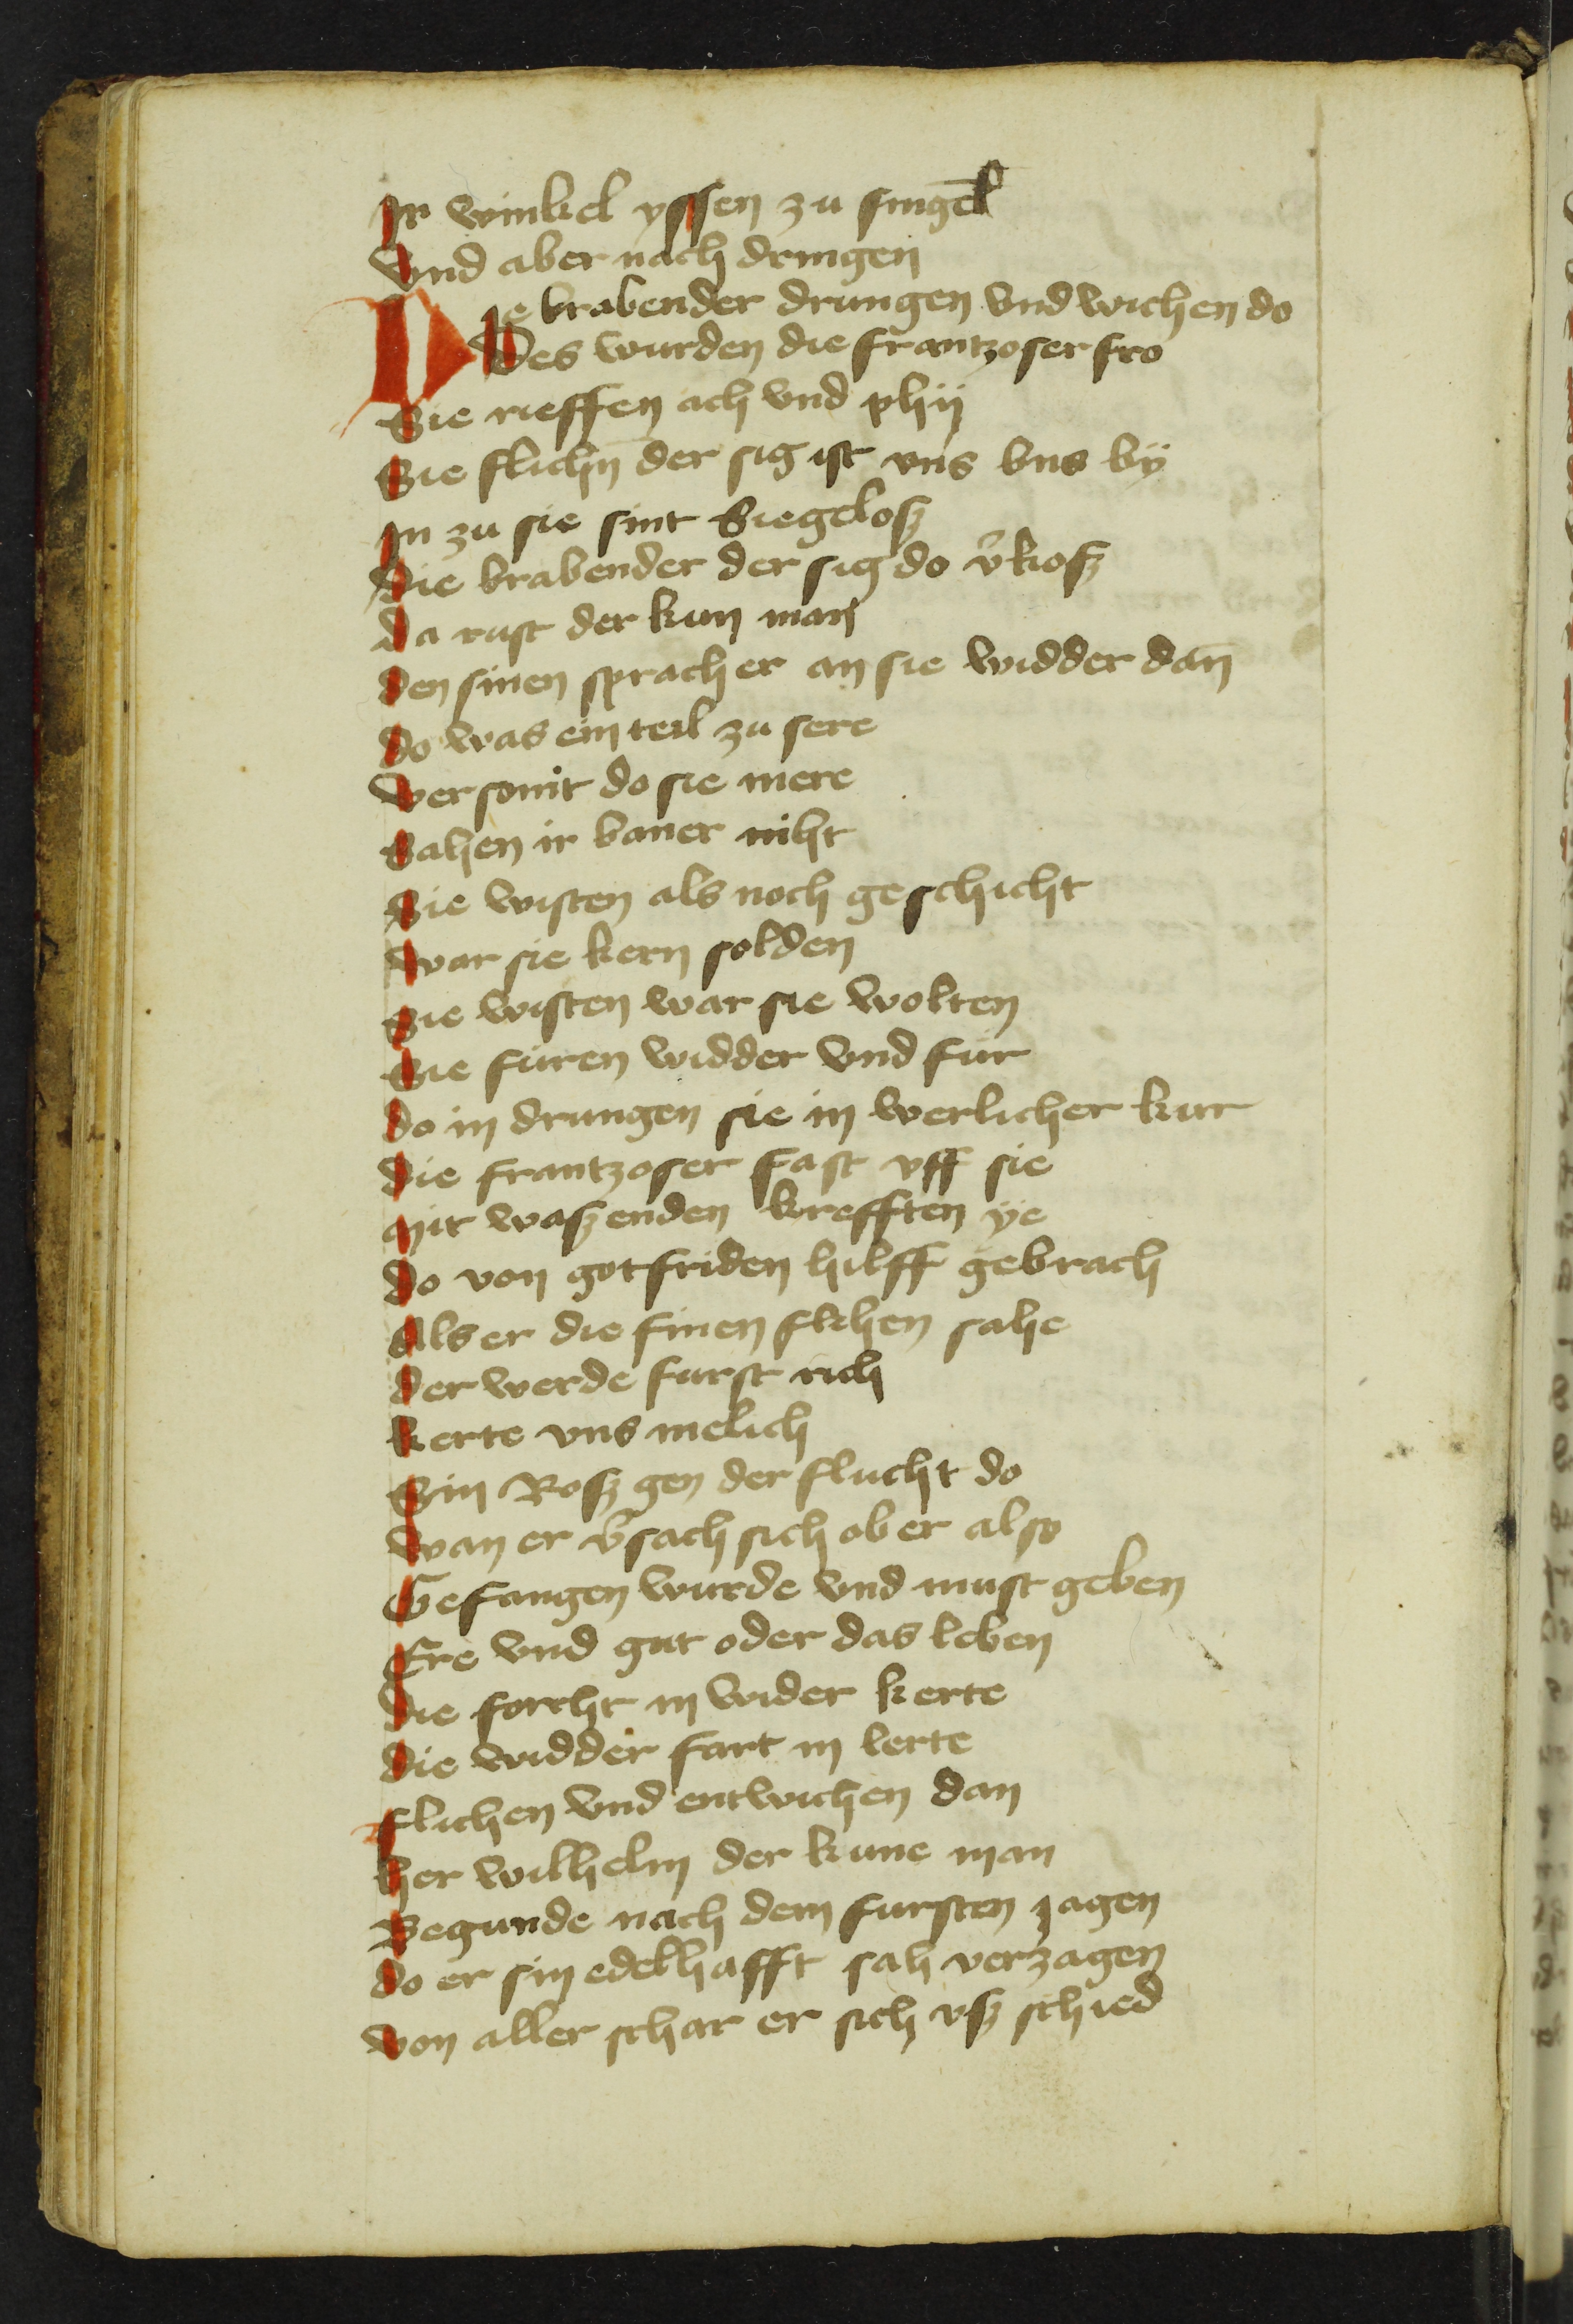 Ir winkel yssen zu singēl
Vnd aber nach dringen
DIe brabender drungen vnd wichen do
Des wurden die frantzoser fro
Sie rieffen ach vnd phij
Sie flichn̄ der sig ist vns bns bÿ
In zu sie sint Siegelosz
Die brabender der sig do v̓kosz
Da rast der kun man
den sinen sprach er an sie widder dan̄
do was ein teil zu sere
Versomt do sie mere
Sahen ir baner niht
Sie wisten als noch geschicht
war sie kern solden
Sie wisten war sie wolten
Sie furen widder vnd fur
do in drungen sie in werlicher kur
die frantzoser fast vff sie
mit waszenden krefften ÿe
do von gotfriden hilff gebrach
Als er die sinen flihen sahe
der werde furst rich
kerte vns melich
Sin Rosz gen der flucht do
wan er v̓sach sich ob er also
Gefangen wurde vnd must geben
Ere vnd gut oder das leben
die forcht in wider kerte
die widder fart in lerte
flichen vnd entwichen dan
her wilhelm der kune man
Begunde nach dem fursten jagen
do er sin edelhafft sah verzagen
von aller schar er sich vsz schied